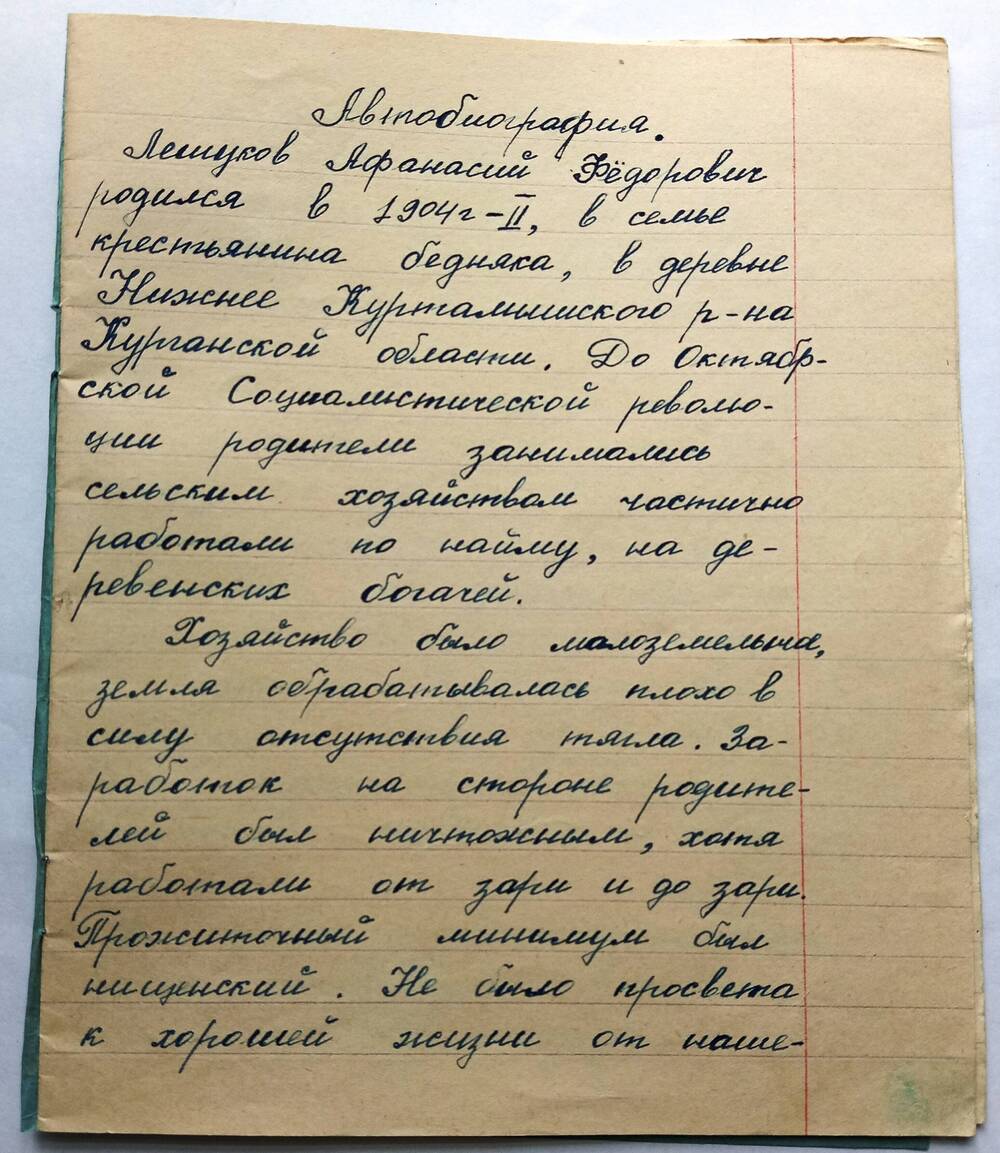 Автобиография.
Лешуков Афанасий Фёдорович
родился в 1904г-II, в семье
крестьянина бедняка, в деревне
Нижнее Куртамышского р-на
Курганской области. До Октябр-
ской Социалистической револю-
ции родители занимались
сельским хозяйством частично
работали по найму, на де-
ревенских богачей.
Хозяйство было малоземельна,
земля обрабатывалась плохо в
силу отсутствия тягла. За-
работок на стороне родите-
лей был ничтожным, хотя
работали от зари и до зари.
Прожиточный минимум был
нищенский. Не было просвета
к хорошей жизни от наше-